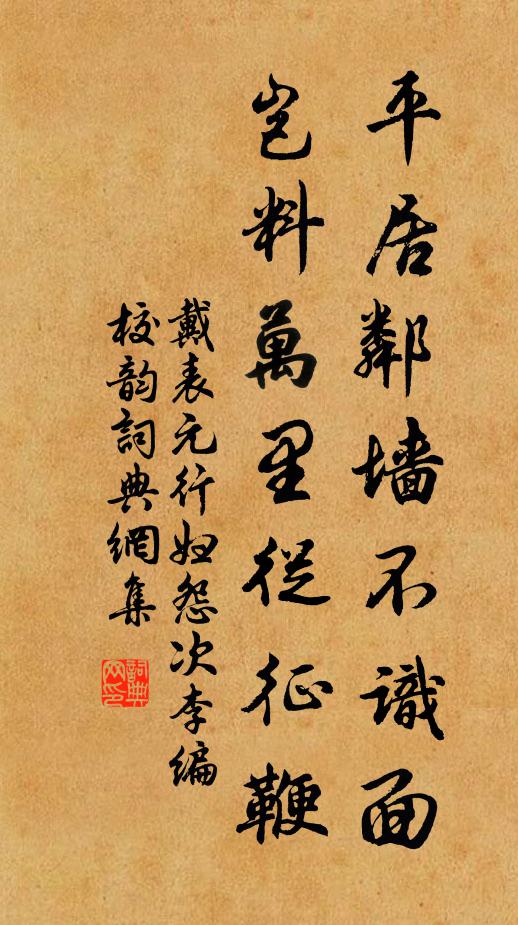 平居鄰墻不識面
豈料萬里從征鞭
戴表元行妇怨次李编
校韵詞典網集
詞典
网印